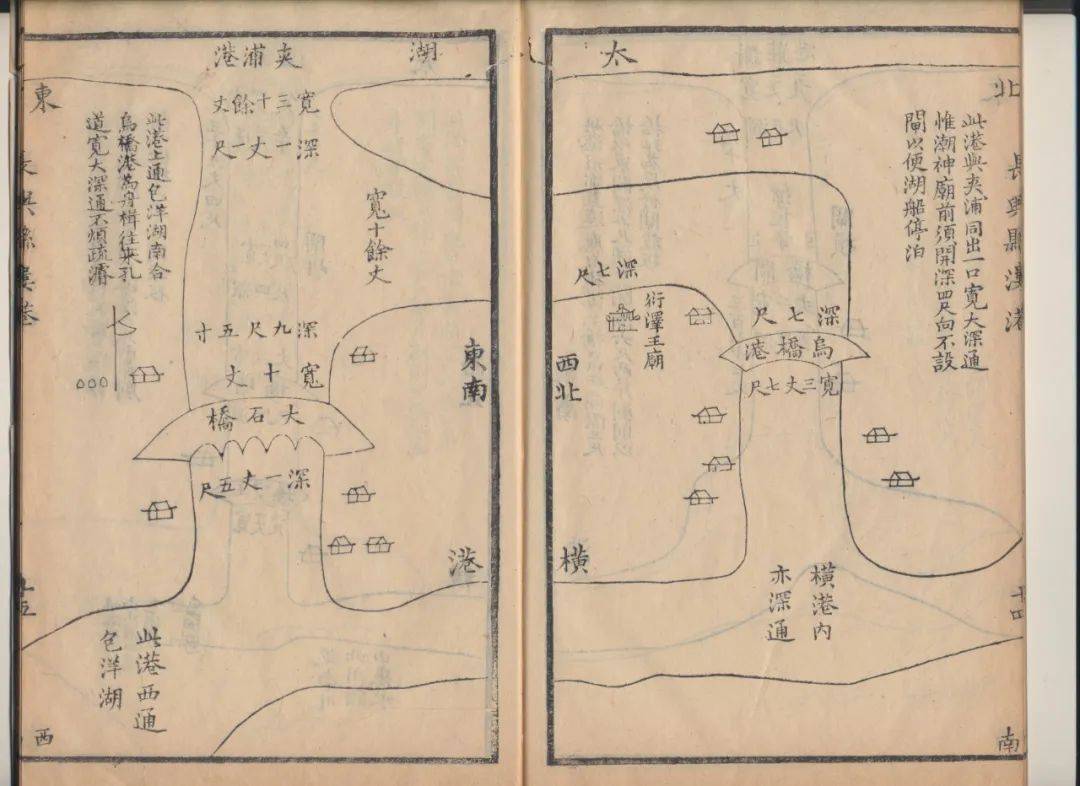 太湖
北
長興縣漊港
此港與夾浦同出一口寬大深通
惟潮神廟前須開深四尺向不設
閘以便湖船停泊
深七尺
烏橋港
寬三丈七尺
深七尺
衍澤王廟
西北
橫港
橫港內
亦深通
十四
南
夾浦港
寬三十餘丈
深一丈一尺
寬十餘丈
東南
深九尺五寸
寬十丈
大石橋
深一丈五尺
東
長興縣漊港
此港上通包洋湖南合
烏橋港為舟楫往來孔
道寬大深通不煩疏濬
十五
此港西通
包洋湖
西